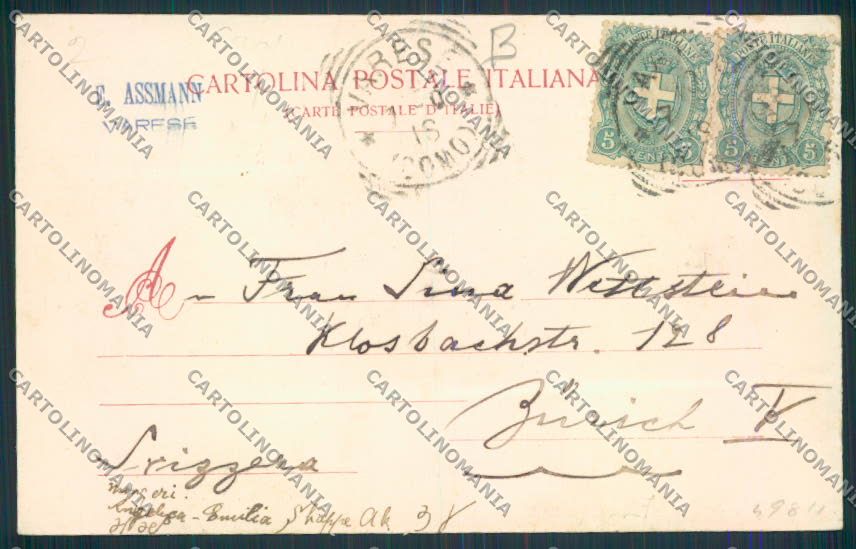 CARTOLINA POSTALE ITALIANA
(CARTE POSTALE D'ITALIE)
E. ASSMANN
VARESE
VARESE
(COMO)
POSTE ITALIANE
5 CENT. 5
POSTE ITALIANE
5 CENT. 5
B
An Frau Lina Wettstein
Klosbachstr. 128
Zürich V
Svizzera
Angelica - Emilia
CARTOLINOMANIA